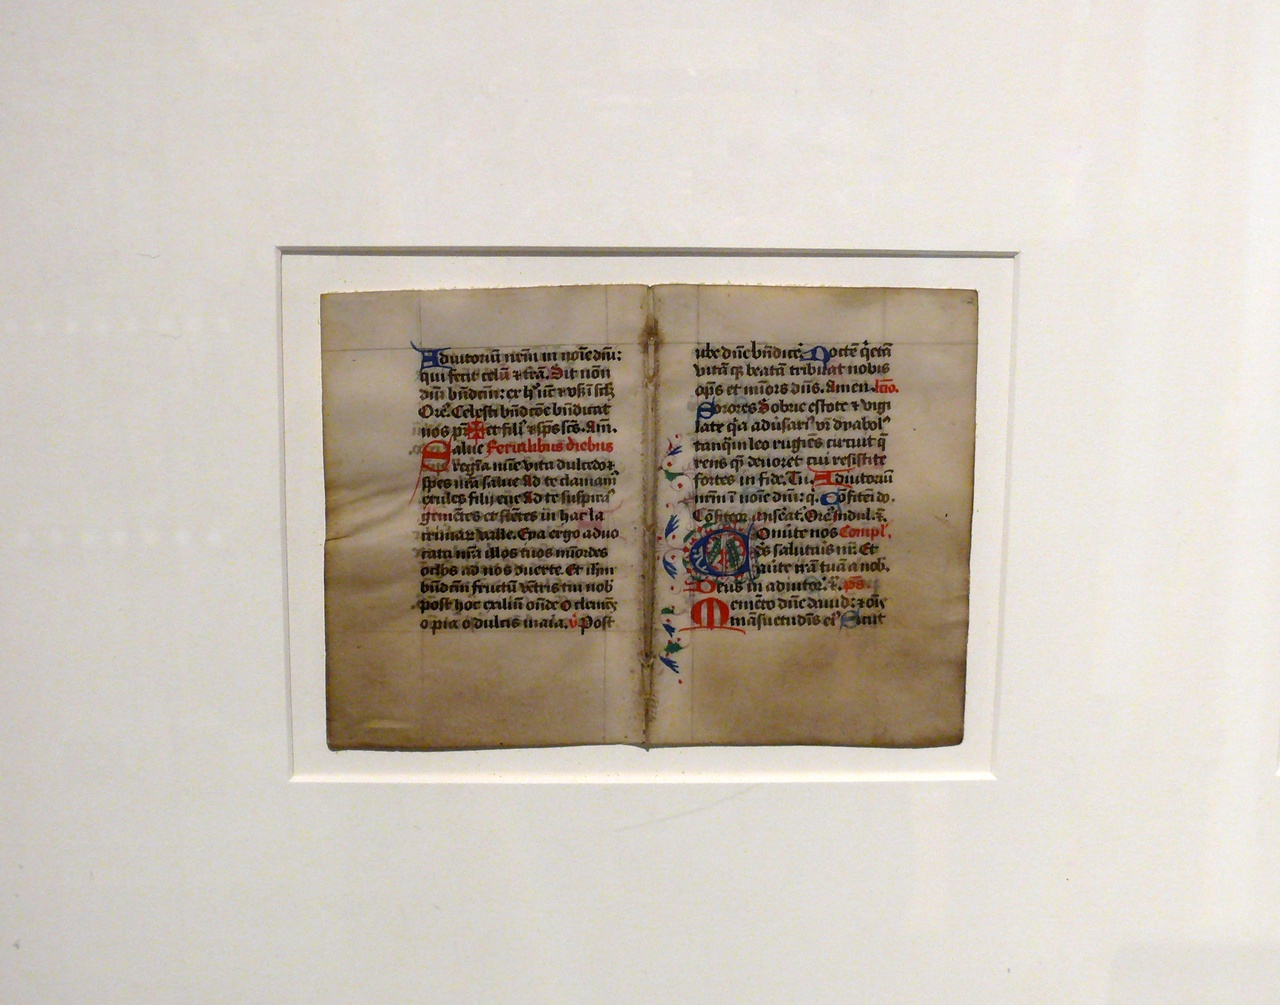 Adiutoriū nrm̄ in noīe dm̄i:
qui fecit celū ⁊ trā. Sit nōn
dm̄i bn̄dcm̄: ex hᵒ nc̄ ⁊ vsqꝫ ī sclꝫ
Orē. Celesti bn̄dcōe bn̄dicat
nos pr̄ ✠ et fili⁹ ⁊ sps̄ scs̄. Am̄.
Salue Ferialibus diebus
regīa mīe vita dulcedo ⁊
spes nrā salue Ad te clamam⁹
exules filij eue Ad te suspira⁹
gemētes et flētes in hac la
crimaꝝ valle. Eya ergo aduo
cata nrā illos tuos mīcordes
oc̄los ad nos cōuerte. Et ihm̄
bn̄dcm̄ fructū vētris tui nob̄
post hoc exiliū on̄de O clemēs
o pia o dulcis maīa. v̄ Post
iube dn̄e bn̄dicē. Noctē q̇etā
vitā qꝫ beatā tribuat nobis
op̄s et mīcors dn̄s. Amen. lcīo.
Sorores Sobrie estote ⁊ vigi
late q̇a adūsari⁹ vr̄ dyabol⁹
tanqm̄ leo rugiēs circuit q̄
rens quē deuoret cui resistite
fortes in fide. Tu. Adiutoriū
nrm̄ ī noīe dm̄i: q̇. Cōfitei dō.
Cōfiteor. Misēat. Orē. Indul. ⁊.
Conūte nos Compl'.
ds̄ salutais nr̄. Et
auīte irā tuā a nob̄.
Deus in adiutor̄. ⁊. ps̄.
Memēto dn̄e dauid: ⁊ oīs
māsuetudīs ei⁹ Sicut